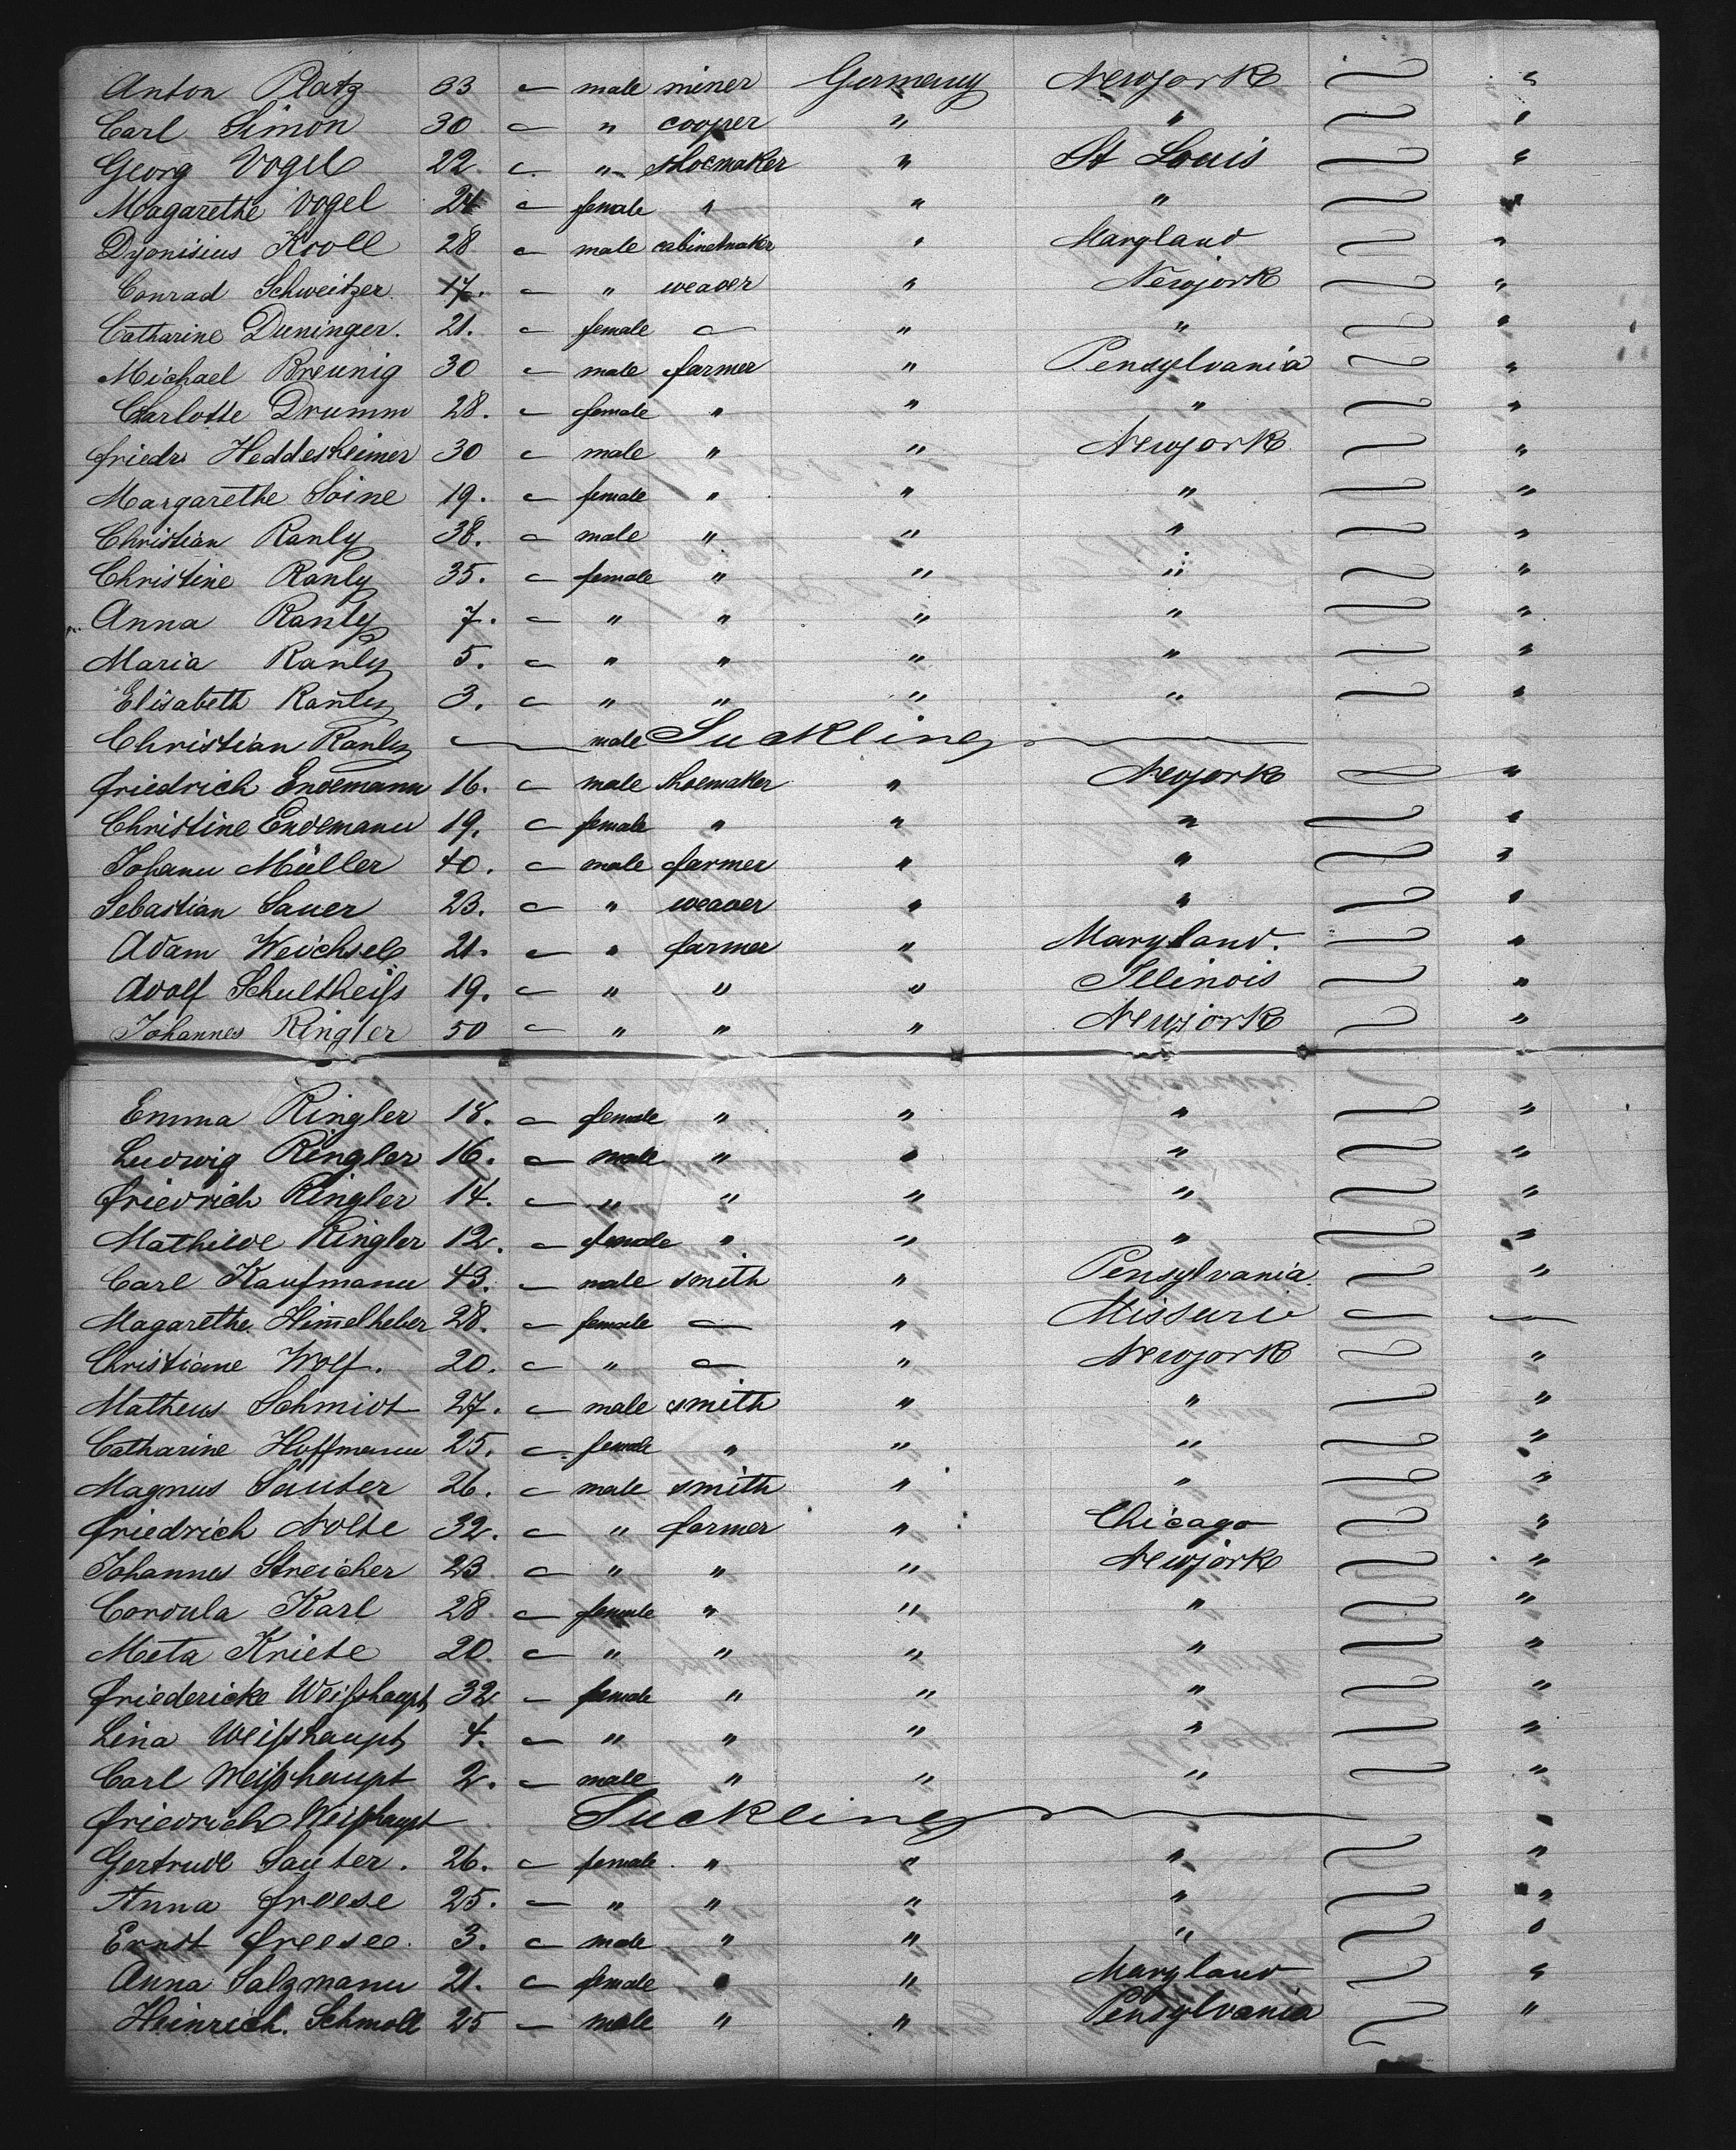 Anton Platz 33 — male miner Germany Newjork "
Carl Simon 30 — " cooper " " "
Georg Vogel 22. — " shoemaker " St Louis "
Magarethe Vogel 24 — female " " " "
Dyonisius Kroll 28 — male cabinetmaker " Maryland "
Conrad Schweitzer 17. — " weaver " Newjork "
Catharine Duninger. 21. — female — " " "
Michael Breunig 30 — male farmer " Pensylvania "
Charlotte Drumm 28. — female " " " "
Friedr. Heddesheimer 30 — male " " Newjork "
Margarethe Soine 19. — female " " " "
Christian Ranly 38. — male " " " "
Christine Ranly 35. — female " " " "
Anna Ranly 7. — " " " " "
Maria Ranly 5. — " " " " "
Elisabeth Ranly 3. — " " " " "
Christian Ranly — male Suckling
Friedrich Endemann 16. — male shoemaker " Newjork "
Christine Endemann 19. — female " " " "
Johann Müller 40. — male farmer " " "
Sebastian Sauer 23. — " weaver " " "
Adam Weichsel 21. — " farmer " Maryland. "
Adolf Schultheiß 19. — " " " Illinois "
Johannes Ringler 50 — " " " Newjork "
Emma Ringler 18. — female " " " "
Ludwig Ringler 16. — male " " " "
Friedrich Ringler 14. — " " " " "
Mathilde Ringler 12. — female " " " "
Carl Kaufmann 43. — male smith " Pensylvania "
Magarethe Him̅elheber 28. — female — " Missuri — —
Christiane Wolf. 20. — " — " Newjork "
Matheus Schmidt 27. — male smith " " "
Catharine Hoffmann 25. — female " " " "
Magnus Sauter 26. — male smith " " "
Friedrich Nolte 32. — " farmer " Chicago "
Johannes Streicher 23. — " " " Newjork "
Cordula Karl 28. — female " " " "
Meta Kriete 20. — " " " " "
Friedericke Weißhaupt 32 — female " " " "
Lina Weißhaupt 4. — " " " " "
Carl Weißhaupt 2. — male " " " "
Friedrich Weißhaupt Suckling "
Gertrude Sauter. 26. — female " " " "
Anna Freese 25. — " " " " "
Ernst Freese. 3. — male " " " "
Anna Salzmann 21. — female " " Maryland "
Heinrich. Schmoll 25 — male " " Pensylvania "